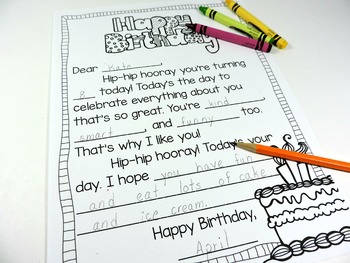 Happy
Birthday
Dear Kate,
Hip-hip hooray you're turning
8 today! Today's the day to
celebrate everything about you
that's so great. You're kind,
smart, and funny too.
That's why I like you!
Hip-hip hooray! Today's your
day. I hope you have fun
and eat lots of cake
and ice cream.
Happy Birthday,
April